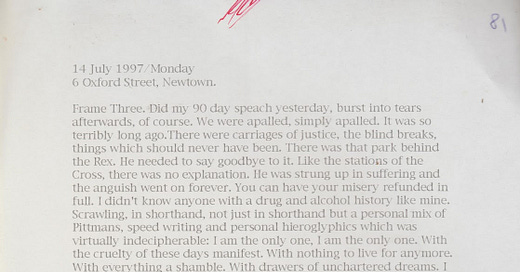 81
14 July 1997/Monday
6 Oxford Street, Newtown.
Frame Three. Did my 90 day speach yesterday, burst into tears
afterwards, of course. We were apalled, simply apalled. It was so
terribly long ago.There were carriages of justice, the blind breaks,
things which should never have been. There was that park behind
the Rex. He needed to say goodbye to it. Like the stations of the
Cross, there was no explanation. He was strung up in suffering and
the anguish went on forever. You can have your misery refunded in
full. I didn't know anyone with a drug and alcohol history like mine.
Scrawling, in shorthand, not just in shorthand but a personal mix of
Pittmans, speed writing and personal hieroglyphics which was
virtually indecipherable: I am the only one, I am the only one. With
the cruelty of these days manifest. With nothing to live for anymore.
With everything a shamble. With drawers of unchartered dreams. I